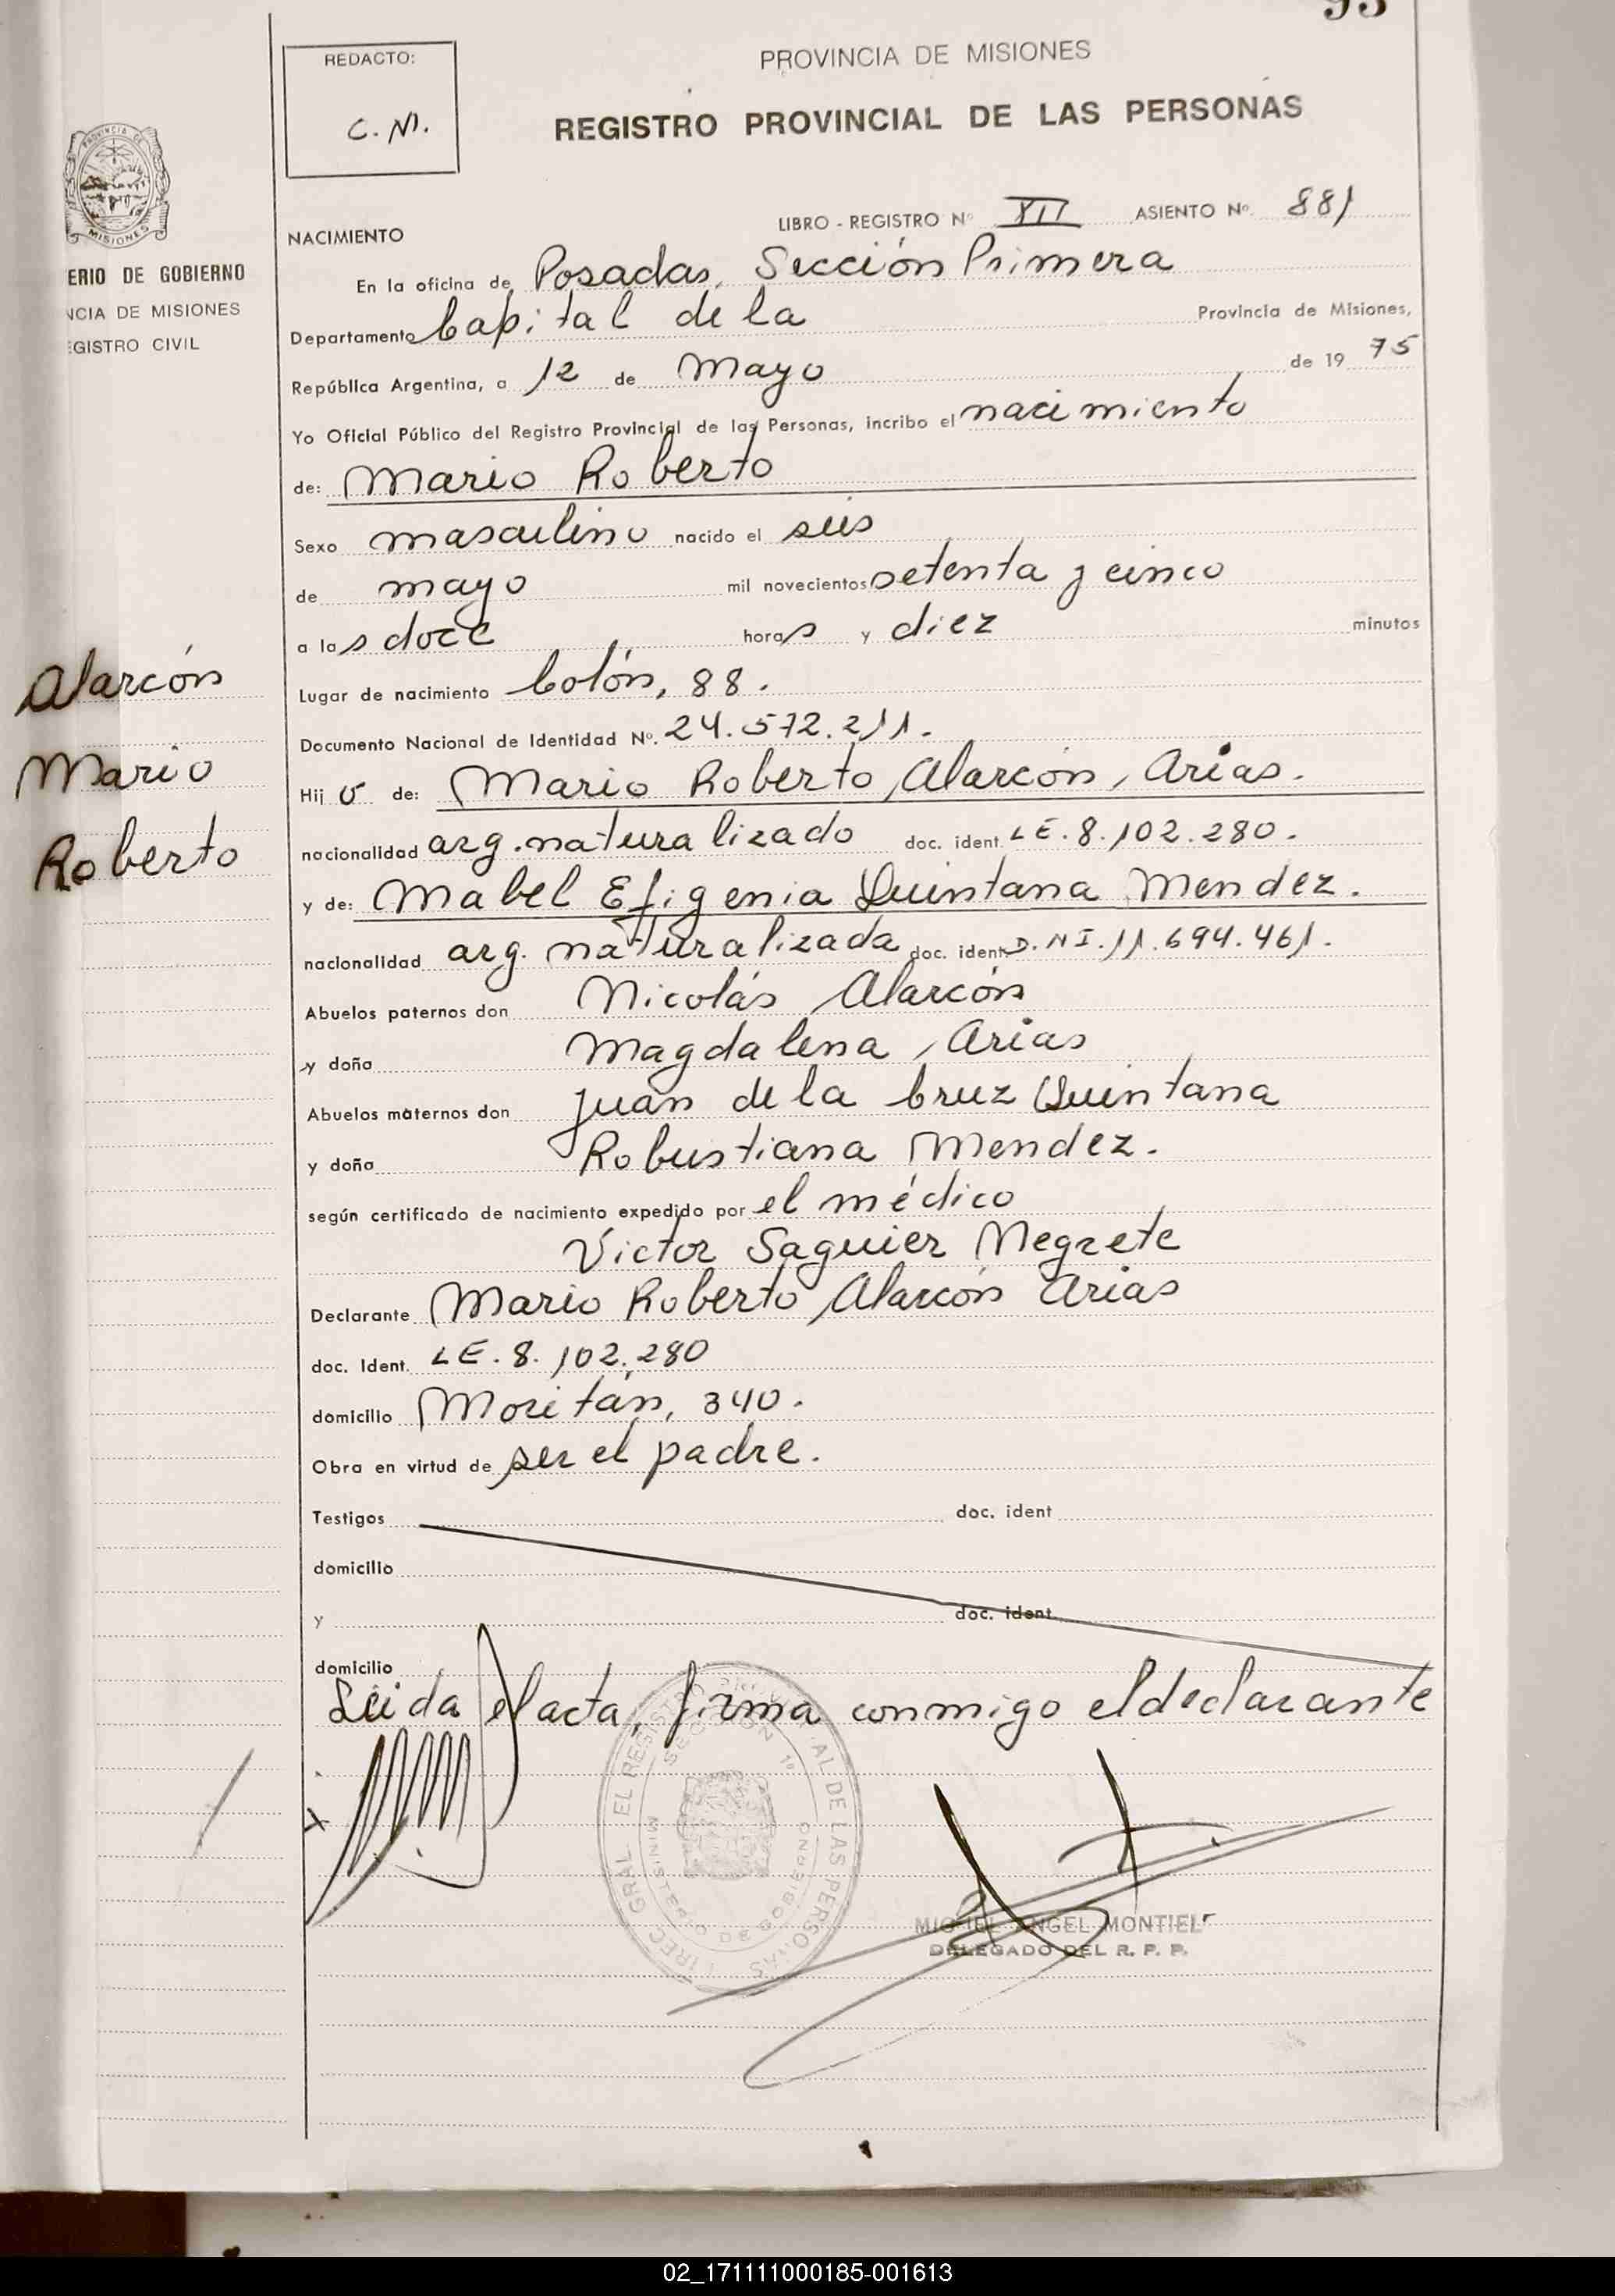 93
REDACTO:
C. M.
PROVINCIA DE MISIONES
REGISTRO PROVINCIAL DE LAS PERSONAS
PROVINCIA DE
MISIONES
ERIO DE GOBIERNO
NCIA DE MISIONES
EGISTRO CIVIL
NACIMIENTO
LIBRO - REGISTRO Nº XII ASIENTO Nº. 881
En la oficina de Posadas, Sección Primera
Departamento Capital de la Provincia de Misiones,
República Argentina, a 12 de Mayo de 19 75
Yo Oficial Público del Registro Provincial de las Personas, incribo el nacimiento
de: Mario Roberto
Sexo masculino nacido el seis
de mayo mil novecientos setenta y cinco
a las doce horas y diez minutos
Lugar de nacimiento Colón, 88.
Documento Nacional de Identidad Nº. 24.572.211.
Hijo de: Mario Roberto Alarcón, Arias.
nacionalidad arg. naturalizado doc. ident. LE. 8.102.280.
y de: Mabel Efigenia Quintana Mendez.
nacionalidad arg. naturalizada doc. ident. D.NI. 11.694.461.
Abuelos paternos don Nicolás Alarcón
y doña Magdalena Arias
Abuelos maternos don Juan de la Cruz Quintana
y doña Robustiana Mendez.
según certificado de nacimiento expedido por el médico
Victor Saguier Negrete
Declarante Mario Roberto Alarcón Arias
doc. Ident. LE. 8.102.280
domicilio Moritán, 340.
Obra en virtud de ser el padre.
Testigos doc. ident
domicilio
y doc. ident
domicilio
Leida el acta, firma conmigo el declarante
Alarcón
Mario
Roberto
x
DIREC GRAL EL REGISTRO PROVINCIAL DE LAS PERSONAS
SECCION 1º
MINISTERIO DE GOBIERNO
MIGUEL ANGEL MONTIEL
DELEGADO DEL R. P. P.
02_171111000185-001613